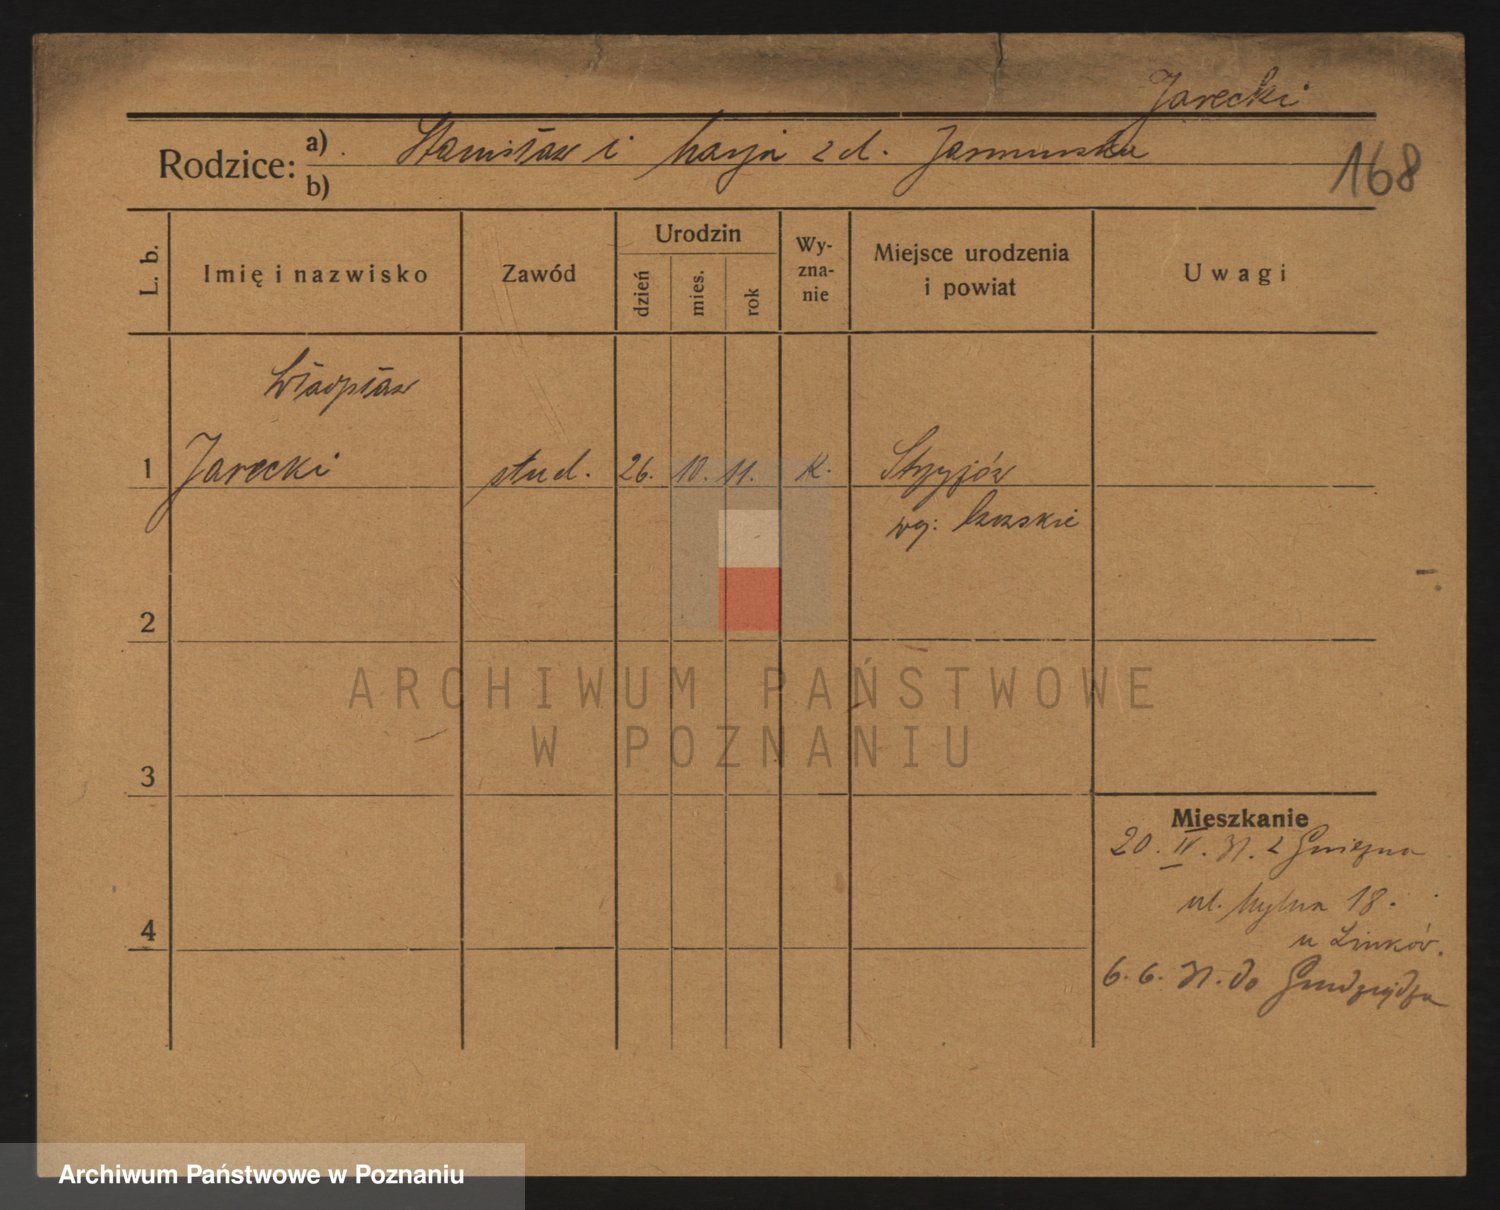 Jarecki
Rodzice: a) Stanisław i Marja z d.
b)
168
L. b.
Imię i nazwisko
Zawód
Urodzin
dzień
mies.
rok
Wy-
zna-
nie
Miejsce urodzenia
i powiat
Uwagi
Władysław
1 Jarecki stud. 26. 10. 11. K. Strzyjów
2
3
4
Mieszkanie
20. IV. 31. z Gniezna
ul. 18.
u
6. 6. 31. do Grudziądza
ARCHIWUM PAŃSTWOWE
W POZNANIU
Archiwum Państwowe w Poznaniu